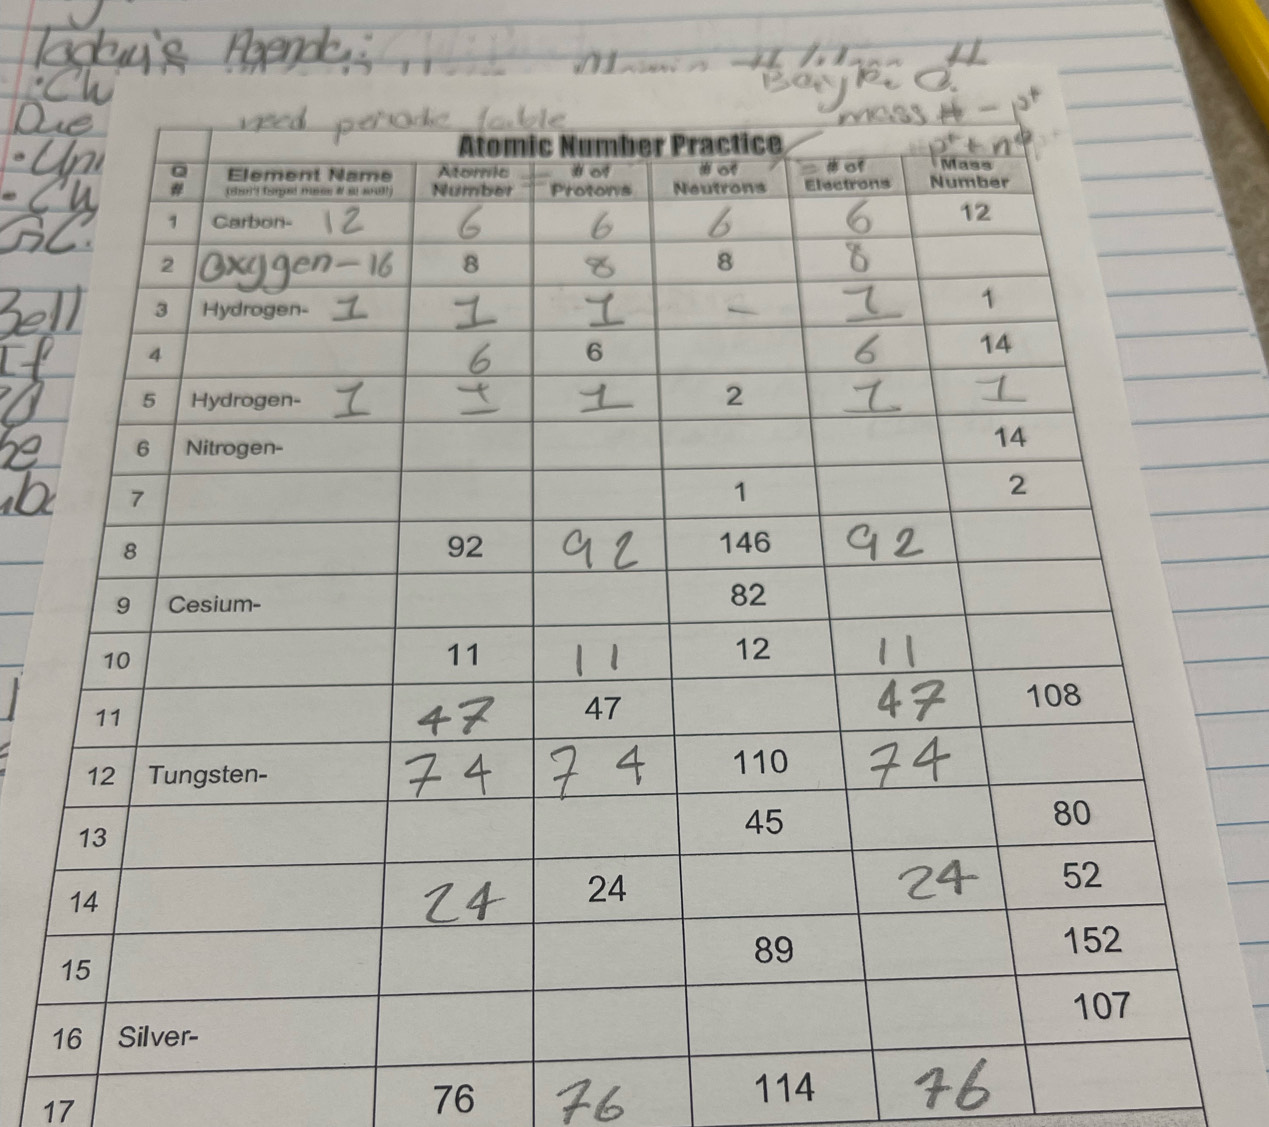 Today's Agenda:
Bayle. C.
:CW
Due
need periodic table
mass # - p+
p+ + n°
Atomic Number Practice
Q # Element Name (don't forget mass # as well!) Atomic Number = # of Protons # of Neutrons = # of Electrons Mass Number
1 Carbon- 12 6 6 6 6 12
2 Oxygen-16 8 8 8 8
3 Hydrogen- 1 1 1 - 1 1
4 6 6 6 14
5 Hydrogen- 1 1 1 2 1 1
6 Nitrogen- 14
7 1 2
8 92 92 146 92
9 Cesium- 82
10 11 11 12 11
11 47 47 47 108
12 Tungsten- 74 74 110 74
13 45 80
14 24 24 24 52
15 89 152
16 Silver- 107
17 76 76 114 76
Bell
If